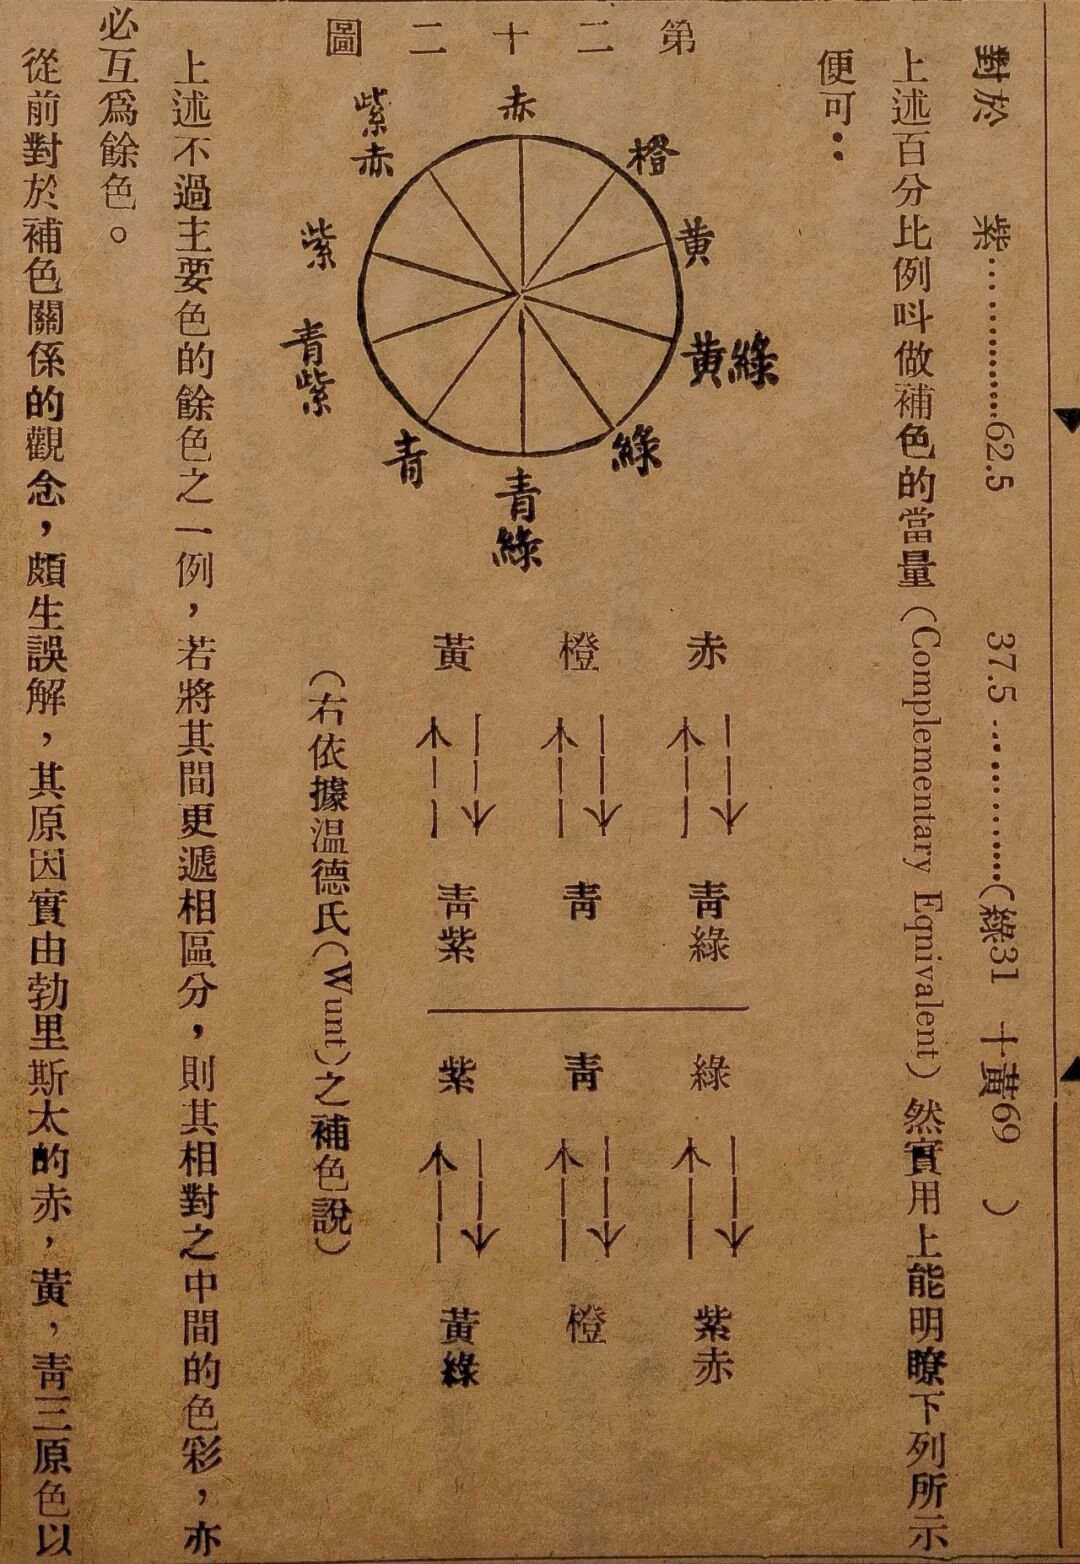 對於 紫……………62.5 37.5……………(綠31 十黃69 )
上述百分比例呌做補色的當量(Complementary Eqnivalent)然實用上能明瞭下列所示
便可：
第二十二圖
赤
橙
黃
黃綠
綠
青綠
青
青紫
紫
紫赤
赤 青綠
橙 青
黃 青紫
綠 紫赤
青 橙
紫 黃綠
(右依據溫德氏(Wunt)之補色說)
上述不過主要色的餘色之一例，若將其間更遞相區分，則其相對之中間的色彩，亦
必互爲餘色。
從前對於補色關係的觀念，頗生誤解，其原因實由勃里斯太的赤，黃，青三原色以